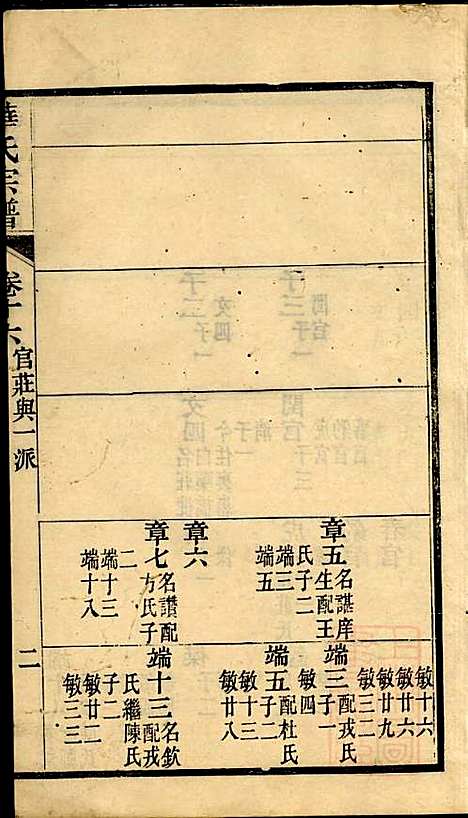 華氏宗譜
卷十六
官莊與一派
二
章五名諶庠
生配王
氏子二
端三
端五
章六
章七名讚配
方氏子
二
端十三
端十八
敏十六
敏廿六
敏廿九
敏三二
端三配戎氏
子一
敏四
端五配杜氏
子二
敏十三
敏廿八
端十三名欽
配戎
氏繼陳氏
子二
敏廿二
敏三三